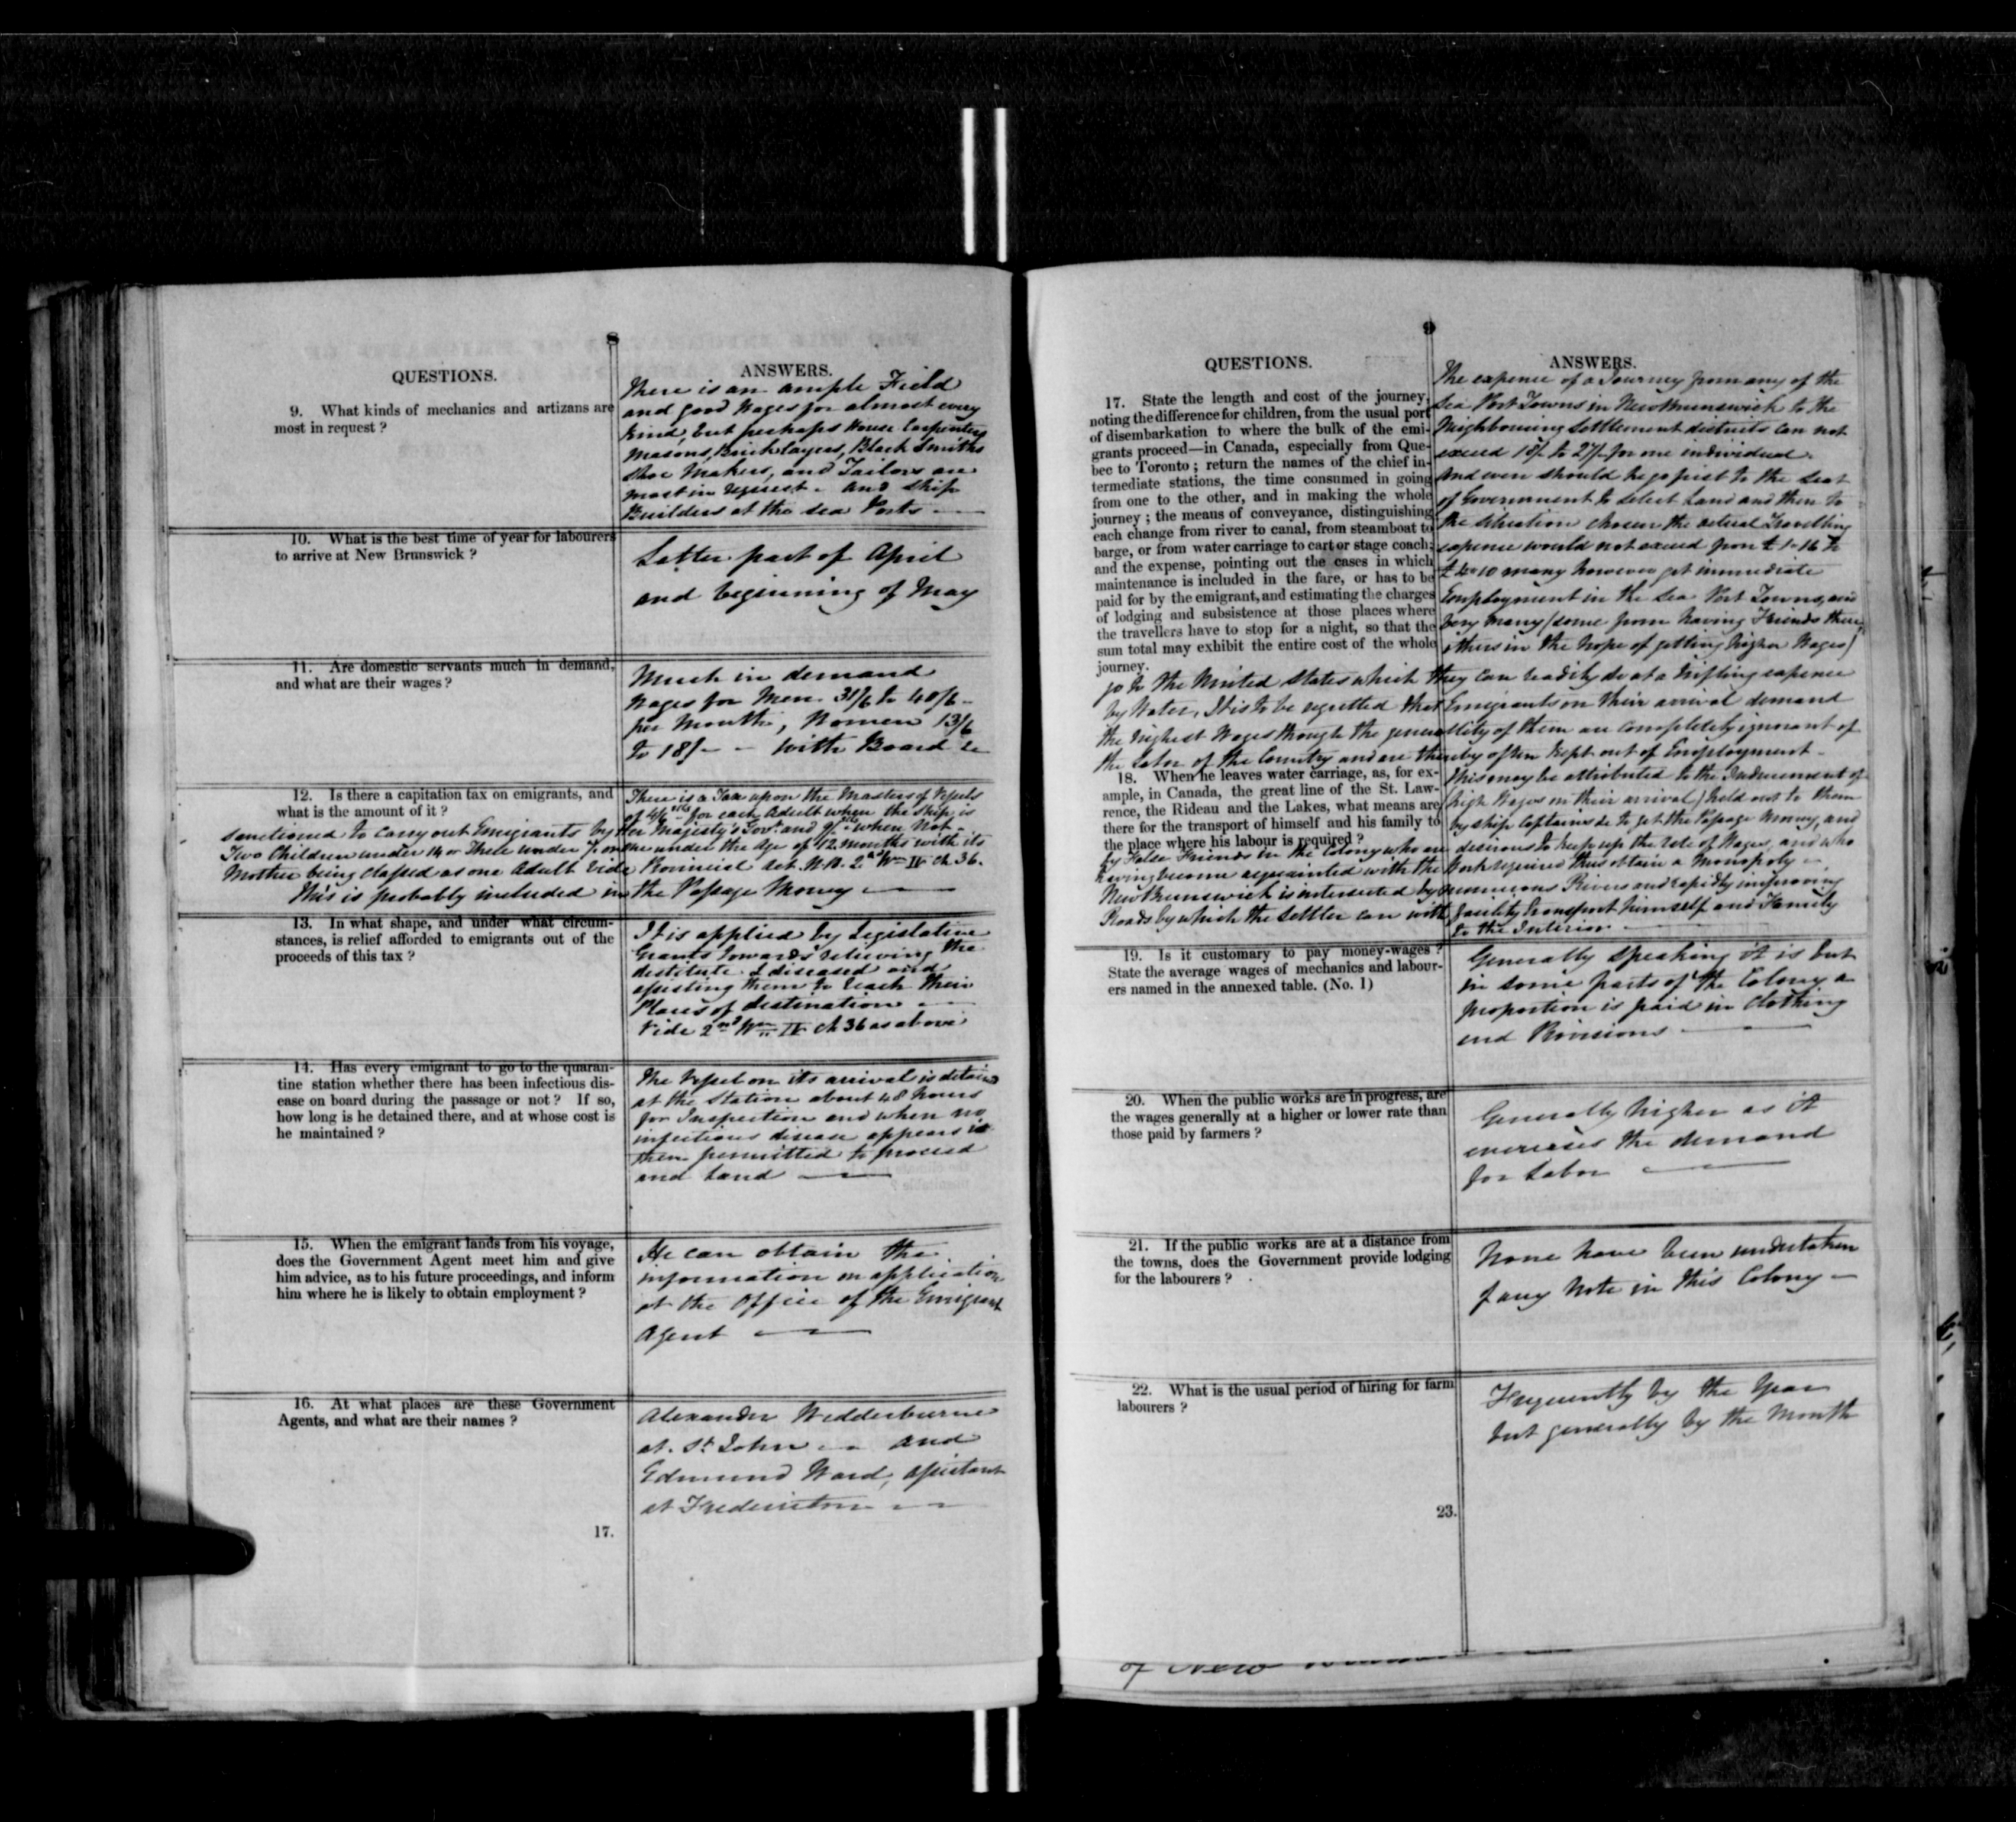 8
QUESTIONS.
ANSWERS.
9. What kinds of mechanics and artizans are
most in request ?
There is an ample Field
and good Wages for almost every
kind; but perhaps House Carpenters
Masons, Bricklayers, Black Smiths
Shoe Makers, and Tailors are
most in request. and Ship
Builders at the Sea Ports
10. What is the best time of year for labourers
to arrive at New Brunswick ?
Latter part of April
and beginning of May
11. Are domestic servants much in demand,
and what are their wages ?
Much in demand
Wages for Men 31/6 to 40/6
per Month, Women 13/6
to 18/- - with Board &c
12. Is there a capitation tax on emigrants, and
what is the amount of it ?
There is a Tax upon the Masters of Vessels
of 4/6 stg for each Adult when the Ship is
sanctioned to carry out Emigrants by Her Majesty's Govt. and 9/ stg when Not -
Two Children under 14 or Three under 7. or one under the Age of 12 months with its
Mother being classed as one Adult Vide Provincial Act N.B. 2nd Wm IV Ch 36.
This is probably included in the Passage Money
13. In what shape, and under what circum-
stances, is relief afforded to emigrants out of the
proceeds of this tax ?
It is applied by Legislative
Grants towards relieving the
destitute & diseased and
assisting them to reach their
Places of destination
Vide 2nd Wm IV Ch 36 as above
14. Has every emigrant to go to the quaran-
tine station whether there has been infectious dis-
ease on board during the passage or not ? If so,
how long is he detained there, and at whose cost is
he maintained ?
The Vessel on its arrival is detained
at the Station about 48 hours
for Inspection and when no
infectious disease appears is
then permitted to proceed
and Land
15. When the emigrant lands from his voyage,
does the Government Agent meet him and give
him advice, as to his future proceedings, and inform
him where he is likely to obtain employment ?
He can obtain the
information on application
at the Office of the Emigrant
Agent
16. At what places are these Government
Agents, and what are their names ?
Alexander Wedderburne
at St John and
Edmund Ward, assistant
at Fredericton
17.
9
QUESTIONS.
ANSWERS.
17. State the length and cost of the journey,
noting the difference for children, from the usual port
of disembarkation to where the bulk of the emi-
grants proceed—in Canada, especially from Que-
bec to Toronto ; return the names of the chief in-
termediate stations, the time consumed in going
from one to the other, and in making the whole
journey ; the means of conveyance, distinguishing
each change from river to canal, from steamboat to
barge, or from water carriage to cart or stage coach;
and the expense, pointing out the cases in which
maintenance is included in the fare, or has to be
paid for by the emigrant, and estimating the charges
of lodging and subsistence at those places where
the travellers have to stop for a night, so that the
sum total may exhibit the entire cost of the whole
journey.
The expense of a Journey from any of the
Sea Port Towns in New Brunswick to the
Neighbouring Settlement districts can not
exceed to for one individual.
And even should he go first to the Seat
of Government to select Land and then to
the situation chosen the actual Travelling
expense would not exceed from £ 1-16 to
many however get immediate
Employment in the Sea Port Towns, and
very many (some from having Friends there,
others in the hope of getting higher Wages)
go to the United States which they can readily do at a trifling expense
by Water, It is to be regretted that Emigrants on their arrival demand
the highest Wages though the generallity of them are completely ignorant of
the Labor of the Country and are thereby often kept out of Employment -
This may be attributed to the Inducement of
(high Wages on their arrival) held out to them
by Ship Captains &c to get the Passage Money, and
by False Friends in the Colony who are desirous to keep up the rate of Wages, and who
having become acquainted with the Work required thus obtain a Monopoly
18. When he leaves water carriage, as, for ex-
ample, in Canada, the great line of the St. Law-
rence, the Rideau and the Lakes, what means are
there for the transport of himself and his family to
the place where his labour is required ?
New Brunswick is intersected by numerous Rivers and rapidly improving
Roads by which the Settler can with facility transport himself and Family
to the Interior
19. Is it customary to pay money-wages ?
State the average wages of mechanics and labour-
ers named in the annexed table. (No. 1)
Generally speaking it is but
in some parts of the Colony a
proportion is paid in Clothing
and Provisions
20. When the public works are in progress, are
the wages generally at a higher or lower rate than
those paid by farmers ?
Generally higher as it
increases the demand
for Labor
21. If the public works are at a distance from
the towns, does the Government provide lodging
for the labourers ?
None have been undertaken
of any Note in this Colony -
22. What is the usual period of hiring for farm
labourers ?
Frequently by the Year
but generally by the Month
23.
of New